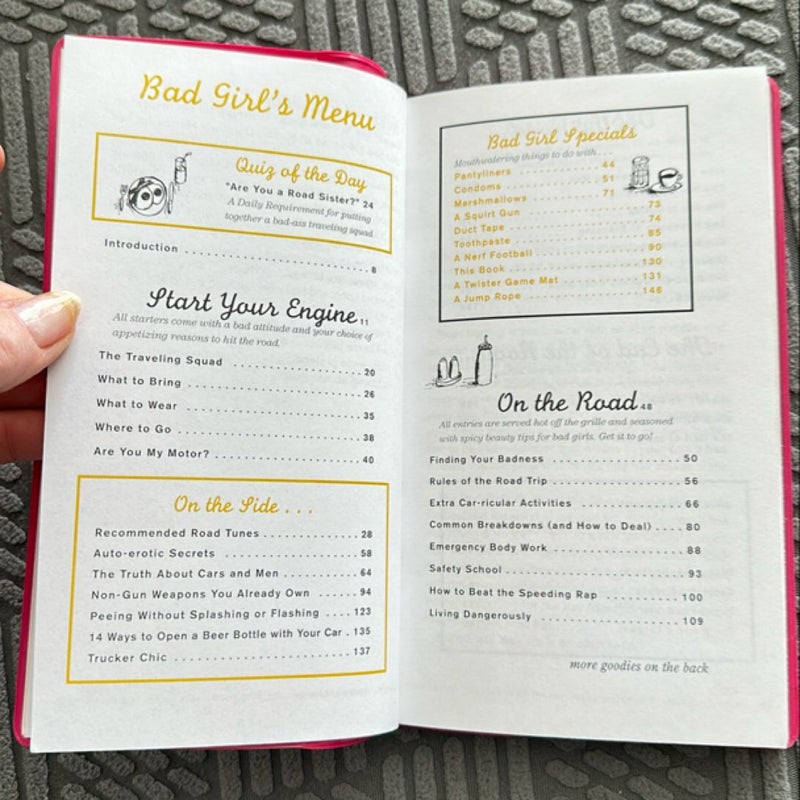 Bad Girl's Menu
Quiz of the Day
"Are You a Road Sister?" 24
A Daily Requirement for putting
together a bad-ass traveling squad
Introduction ........................ 8
Start Your Engine 11
All starters come with a bad attitude and your choice of
appetizing reasons to hit the road.
The Traveling Squad .................. 20
What to Bring ........................ 26
What to Wear ........................ 35
Where to Go ........................ 38
Are You My Motor? .................... 40
On the Side . . .
Recommended Road Tunes .............. 28
Auto-erotic Secrets .................. 58
The Truth About Cars and Men .......... 64
Non-Gun Weapons You Already Own ...... 94
Peeing Without Splashing or Flashing .... 123
14 Ways to Open a Beer Bottle with Your Car . 135
Trucker Chic ........................ 137
Bad Girl Specials
Mouthwatering things to do with . . .
Pantyliners .............. 44
Condoms ................ 51
Marshmallows ............ 71
A Squirt Gun .................. 73
Duct Tape .................... 74
Toothpaste .................... 85
A Nerf Football ................ 90
This Book .................... 130
A Twister Game Mat ............ 131
A Jump Rope .................. 146
On the Road 48
All entries are served hot off the grille and seasoned
with spicy beauty tips for bad girls. Get it to go!
Finding Your Badness .................. 50
Rules of the Road Trip .................. 56
Extra Car-ricular Activities .............. 66
Common Breakdowns (and How to Deal) .... 80
Emergency Body Work .................. 88
Safety School ........................ 93
How to Beat the Speeding Rap .......... 100
Living Dangerously .................... 109
more goodies on the back